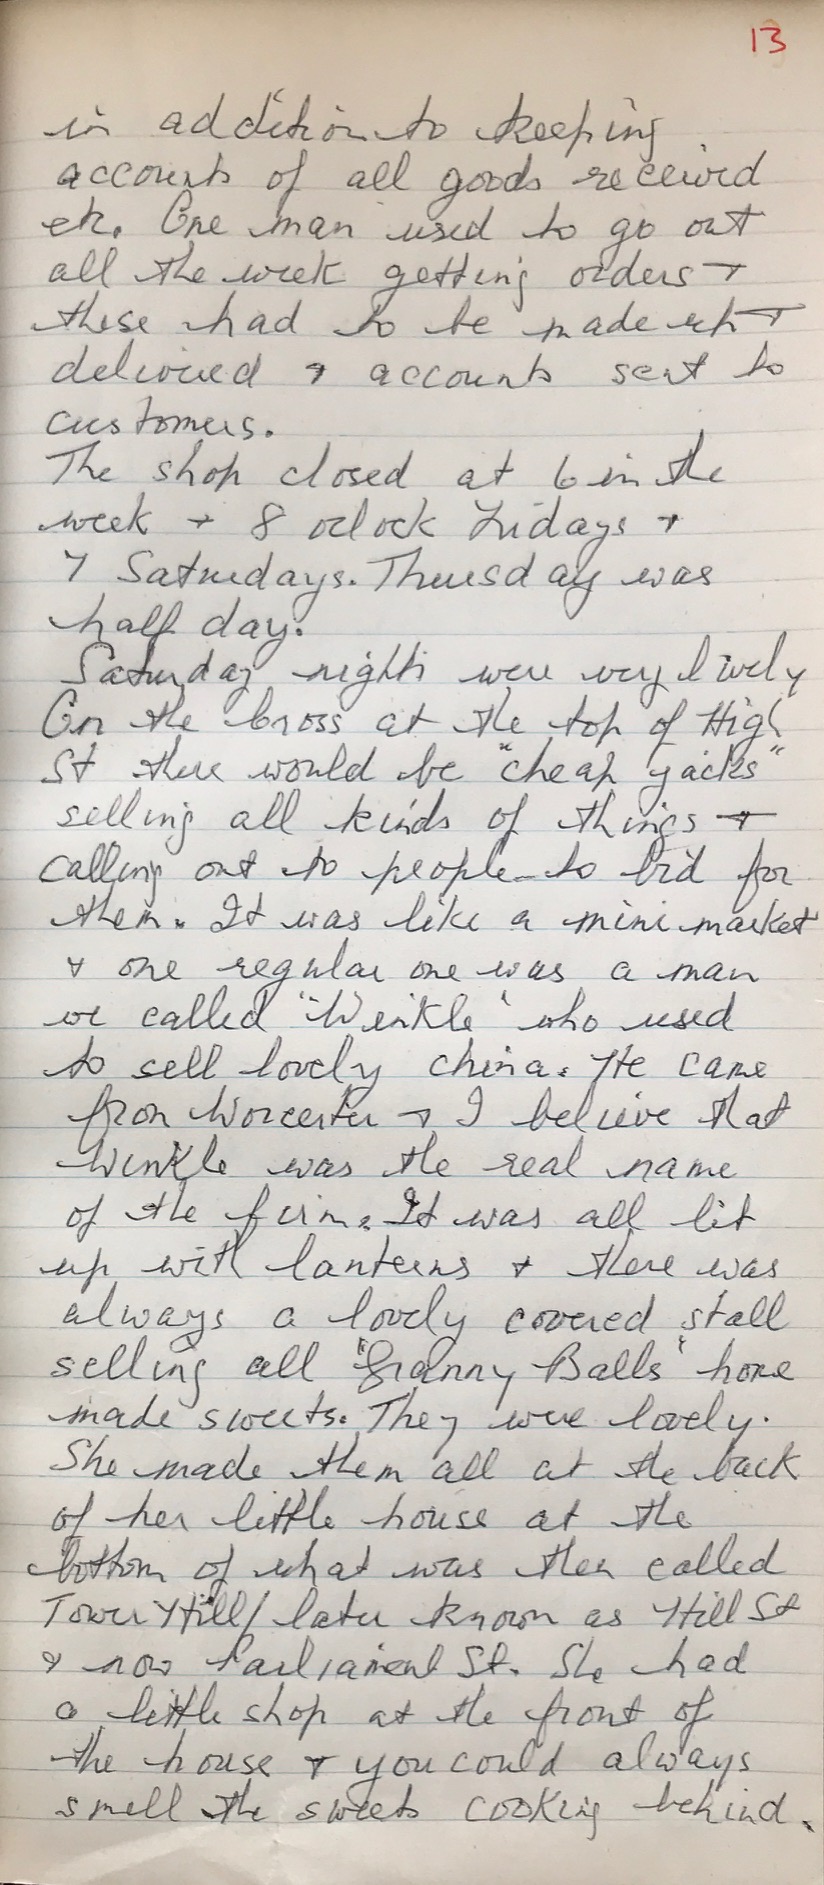 13
in addition to keeping
accounts of all goods received
etc. One man used to go out
all the week getting orders +
these had to be made up +
delivered + accounts sent to
customers.
The shop closed at 6 in the
week + 8 oclock Fridays +
7 Saturdays. Thursday was
half day.
Saturday nights were very lively
On the Cross at the top of High
St there would be "cheap jacks"
selling all kinds of things +
calling out to people to bid for
them. It was like a mini market
+ one regular one was a man
we called "Winkle" who used
to sell lovely china. He came
from Worcester + I believe that
Winkle was the real name
of the firm. It was all lit
up with lanterns + there was
always a lovely covered stall
selling all "Granny Balls" home
made sweets. They were lovely.
She made them all at the back
of her little house at the
bottom of what was then called
Tower Hill/ later known as Hill St
+ now Parliament St. She had
a little shop at the front of
the house + you could always
smell the sweets cooking behind.